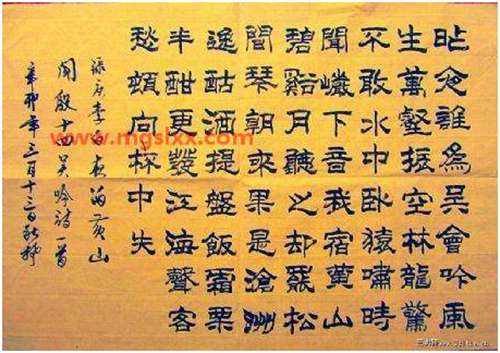 昨夜誰為吳會吟風
生萬壑振空林龍驚
不敢水中臥猿嘯時
聞巖下音我宿黃山
碧谿月聽之却罷松
間琴朝來果是滄洲
逸酤酒提盤飯霜栗
半酣更發江海聲客
愁頓向杯中失
錄唐李白夜泊黃山
聞殷十四吳吟詩一首
辛卯年三月十三日
www.mgslxx.com